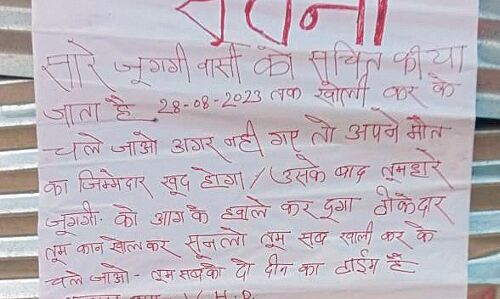 सूचना
सारे जूगगी वासी को सुचित कीया
जाता है 28-08-2023 तक खाली कर के
चले जाओ अगर नही गए तो अपने मौत
का जिम्मेदार खूद होगा / उसके बाद तूमहारे
जूगगी. को आग के हवाले कर दुगा ठीकेदार
तूम कान खोल कर सूनलो तूम सब खाली कर के
चले जाओ - तूम सबको दो दीन का टाईम है